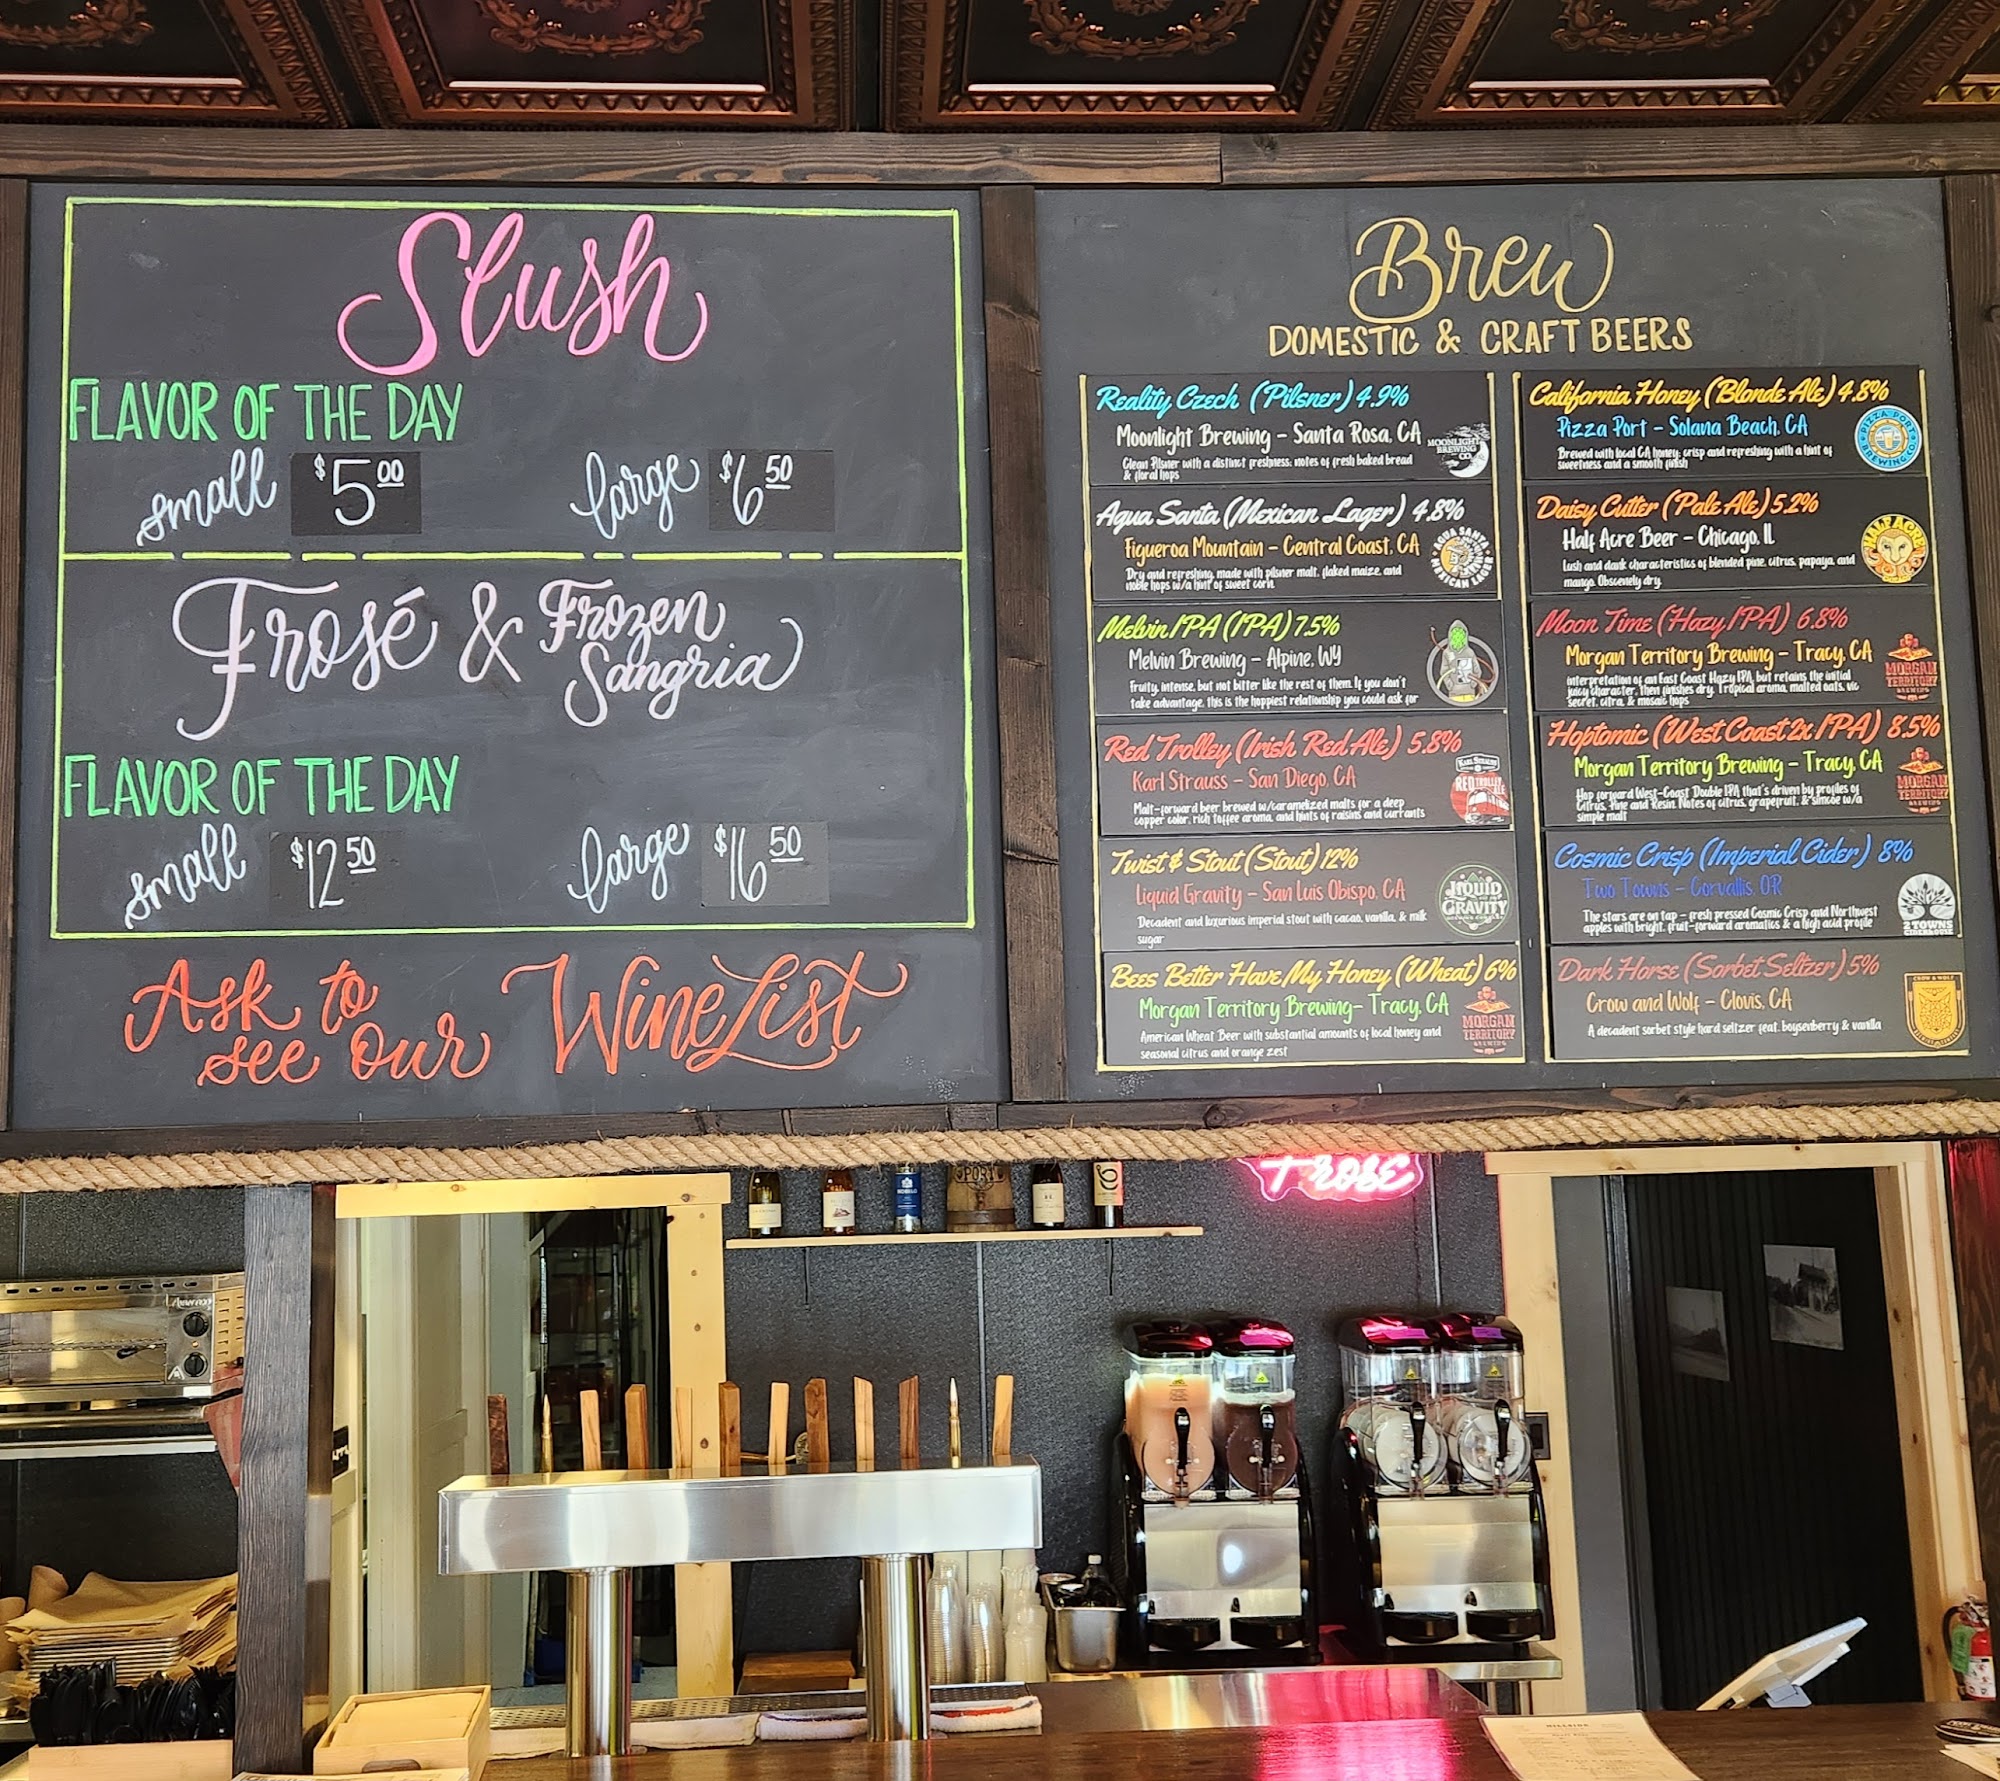 Slush
FLAVOR OF THE DAY
small $5.00 large $6.50
Frosé & Frozen Sangria
FLAVOR OF THE DAY
small $12.50 large $16.50
Ask to see our Wine List
Brew
DOMESTIC & CRAFT BEERS
Reality Czech (Pilsner) 4.9%
Moonlight Brewing – Santa Rosa, CA
Clean Pilsner with a distinct freshness; notes of fresh baked bread
& floral hops
MOONLIGHT
BREWING
CO.
Agua Santa (Mexican Lager) 4.8%
Figueroa Mountain – Central Coast, CA
Dry and refreshing, made with pilsner malt, flaked maize, and
noble hops w/a hint of sweet corn.
AGUA SANTA
MEXICAN LAGER
Melvin IPA (IPA) 7.5%
Melvin Brewing – Alpine, WY
Fruity, intense, but not bitter like the rest of them. If you don't
take advantage, this is the hoppiest relationship you could ask for
Red Trolley (Irish Red Ale) 5.8%
Karl Strauss – San Diego, CA
Malt-forward beer brewed w/caramelized malts for a deep
copper color, rich toffee aroma, and hints of raisins and currants
KARL STRAUSS
RED TROLLEY
ALE
Twist & Stout (Stout) 12%
Liquid Gravity – San Luis Obispo, CA
Decadent and luxurious imperial stout with cacao, vanilla, & milk
sugar
LIQUID
GRAVITY
Bees Better Have My Honey (Wheat) 6%
Morgan Territory Brewing– Tracy, CA
American Wheat Beer with substantial amounts of local honey and
seasonal citrus and orange zest
MORGAN
TERRITORY
BREWING
California Honey (Blonde Ale) 4.8%
Pizza Port – Solana Beach, CA
Brewed with local CA honey; crisp and refreshing with a hint of
sweetness and a smooth finish
PIZZA PORT
BREWING CO.
Daisy Cutter (Pale Ale) 5.2%
Half Acre Beer – Chicago, IL
Lush and dank characteristics of blended pine, citrus, papaya, and
mango. Obscenely dry.
HALF ACRE
CHICAGO
Moon Time (Hazy IPA) 6.8%
Morgan Territory Brewing – Tracy, CA
interpretation of an East Coast Hazy IPA, but retains the initial
juicy character, then finishes dry. Tropical aroma, malted oats, vic
secret, citra, & mosaic hops
MORGAN
TERRITORY
BREWING
Hoptomic (West Coast 2x IPA) 8.5%
Morgan Territory Brewing – Tracy, CA
Hop forward West-Coast Double IPA that's driven by profiles of
Citrus, Pine and Resin. Notes of citrus, grapefruit, & simcoe w/a
simple malt
MORGAN
TERRITORY
BREWING
Cosmic Crisp (Imperial Cider) 8%
Two Towns – Corvallis, OR
The stars are on tap – fresh pressed Cosmic Crisp and Northwest
apples with bright, fruit-forward aromatics & a high acid profile
2 TOWNS
CIDERHOUSE
Dark Horse (Sorbet Seltzer) 5%
Crow and Wolf – Clovis, CA
A decadent sorbet style hard seltzer feat. boysenberry & vanilla
CROW & WOLF
PORT
FROSE